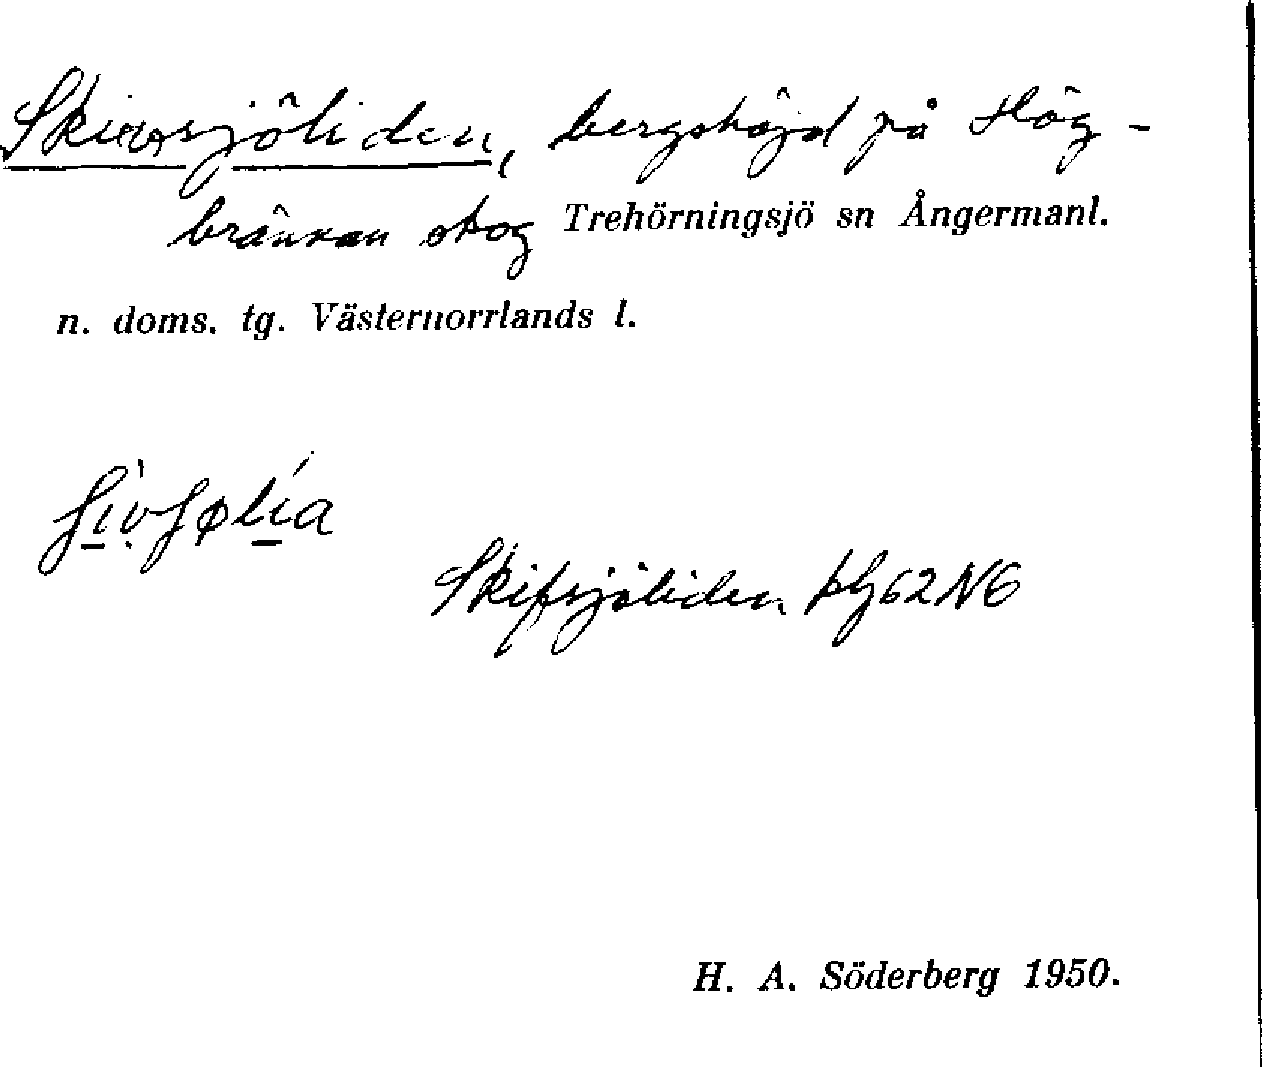 Skivsjöliden, bergshöjd på Hög-
brännan skog Trehörningsjö sn Ångermanl.
n. doms. tg. Västernorrlands l.
Skifsjöliden kbl 62 NG
H. A. Söderberg 1950.